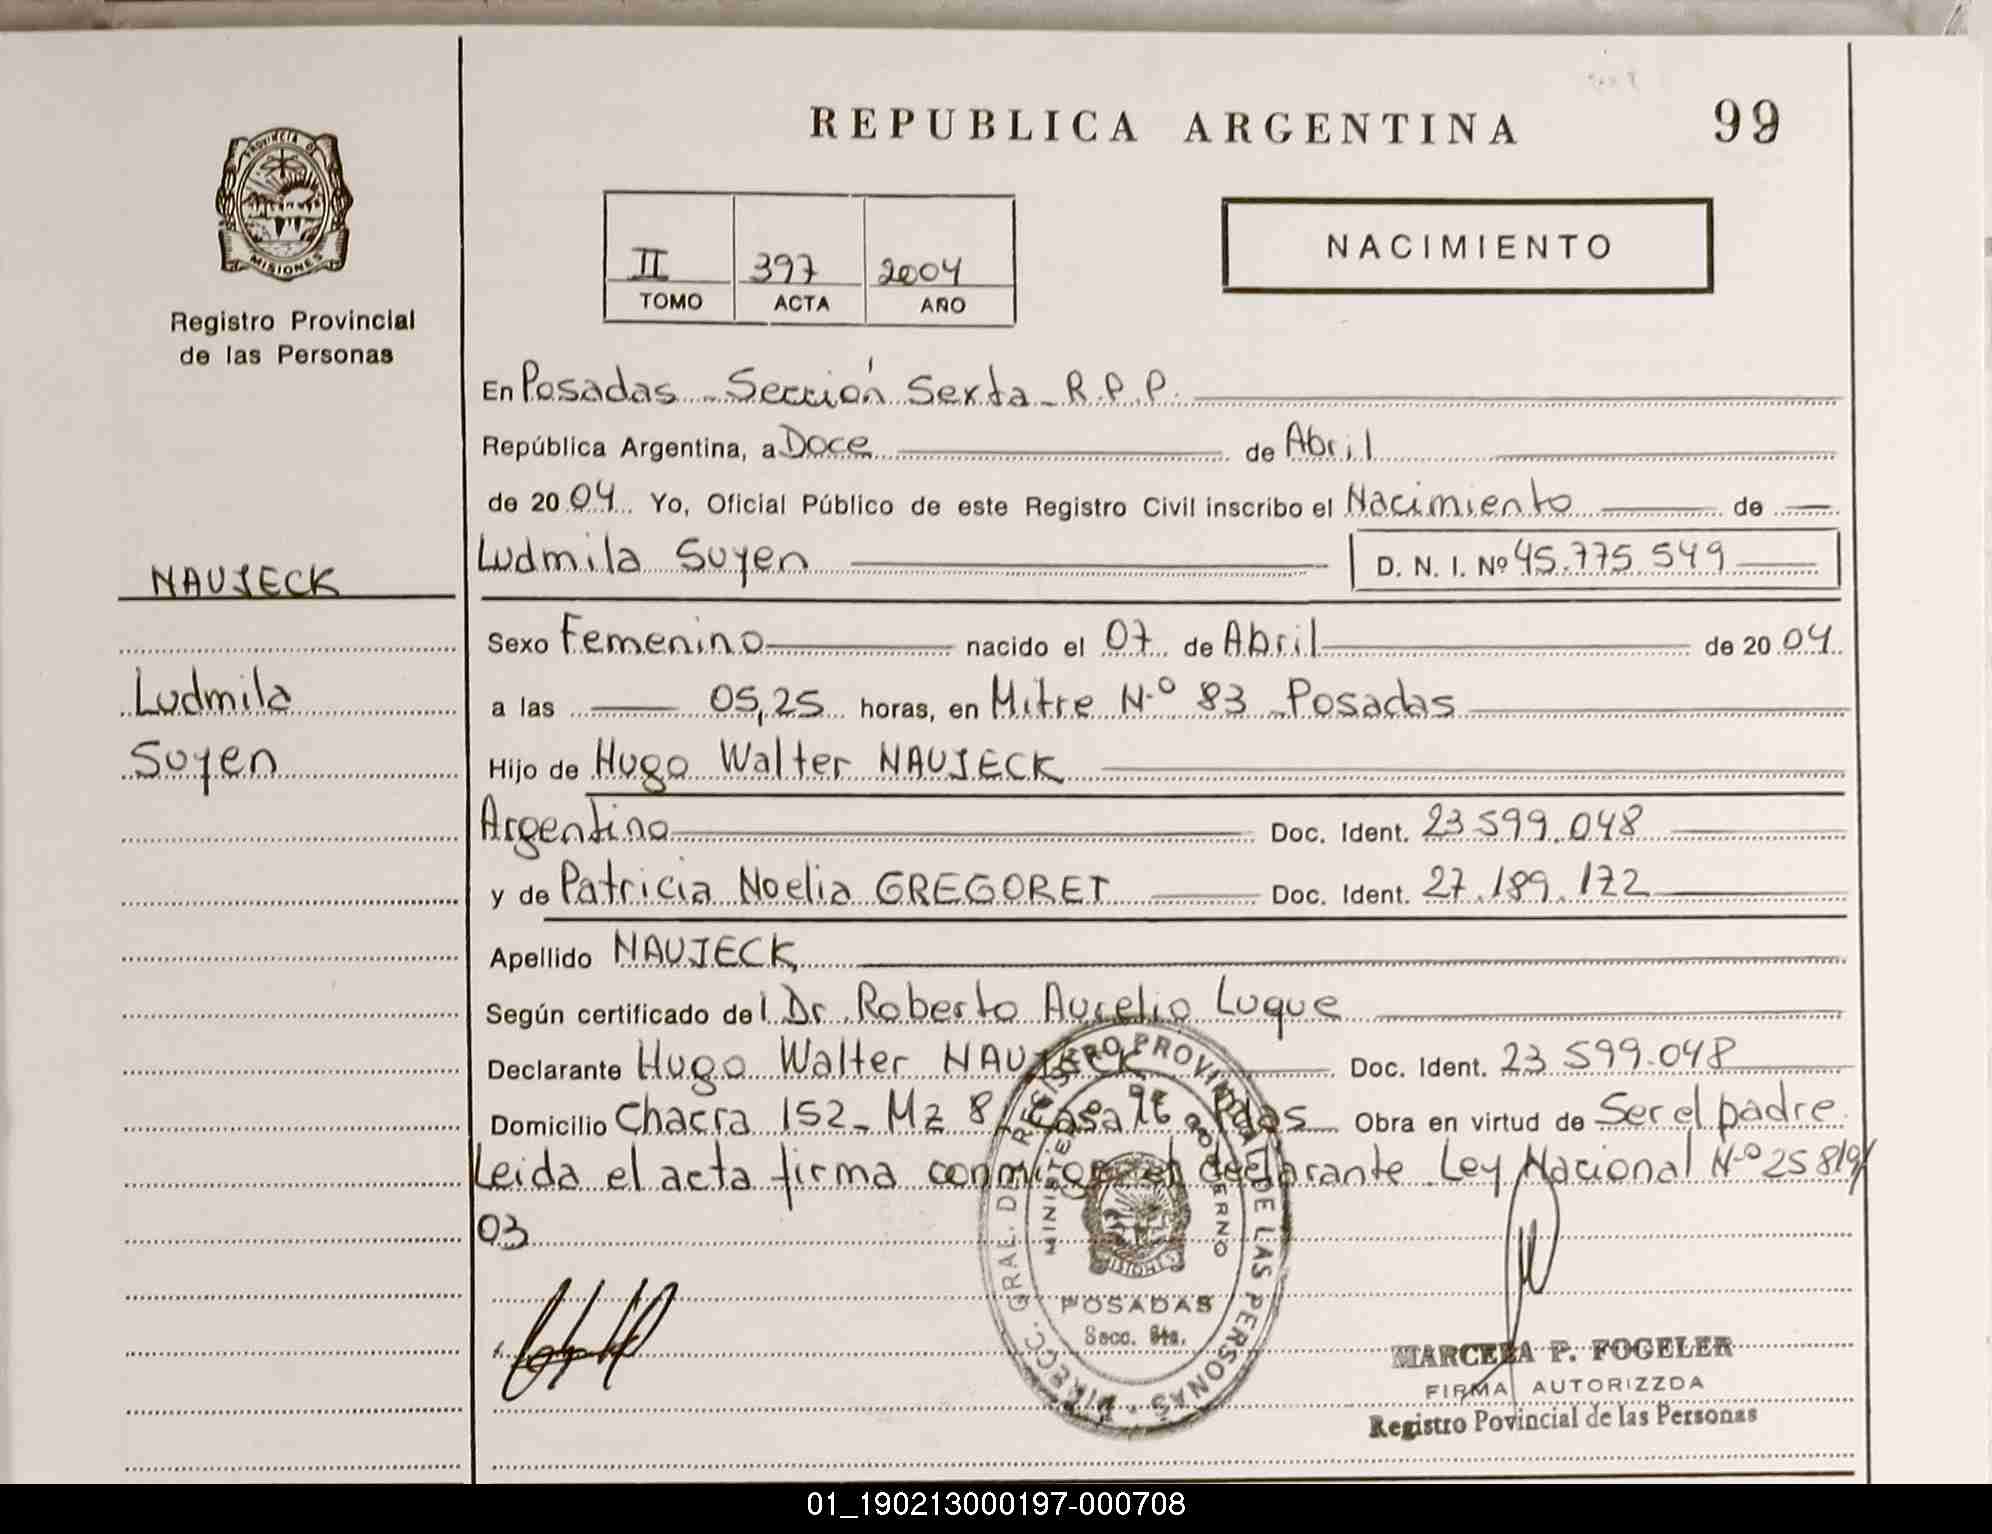 REPUBLICA ARGENTINA
99
PROVINCIA DE
MISIONES
Registro Provincial
de las Personas
II 397 2004
TOMO ACTA AÑO
NACIMIENTO
En Posadas - Sección Sexta - R.P.P.
República Argentina, a Doce de Abril
de 2004 Yo, Oficial Público de este Registro Civil inscribo el Nacimiento de
NAUJECK
Ludmila Suyen D. N. I. Nº 45.775.549
Sexo Femenino nacido el 07 de Abril de 2004
Ludmila
a las 05,25 horas, en Mitre N.º 83 - Posadas
Suyen
Hijo de Hugo Walter NAUJECK
Argentino Doc. Ident. 23.599.048
y de Patricia Noelia GREGORET Doc. Ident. 27.189.172
Apellido NAUJECK
Según certificado del Dr. Roberto Aurelio Luque
Declarante Hugo Walter NAUJECK Doc. Ident. 23.599.048
Domicilio Chacra 152 - Mz 8 Casa Pdas Obra en virtud de Ser el padre
Leida el acta firma conmigo el declarante. Ley Nacional N.º 25819/
03
DIRECC. GRAL. DE REGISTRO PROVINCIAL DE LAS PERSONAS
MINISTERIO DE GOBIERNO
MISIONES
POSADAS
Secc. 6ta.
MARCELA P. FOGELER
FIRMA AUTORIZZDA
Registro Povincial de las Personas
01_190213000197-000708